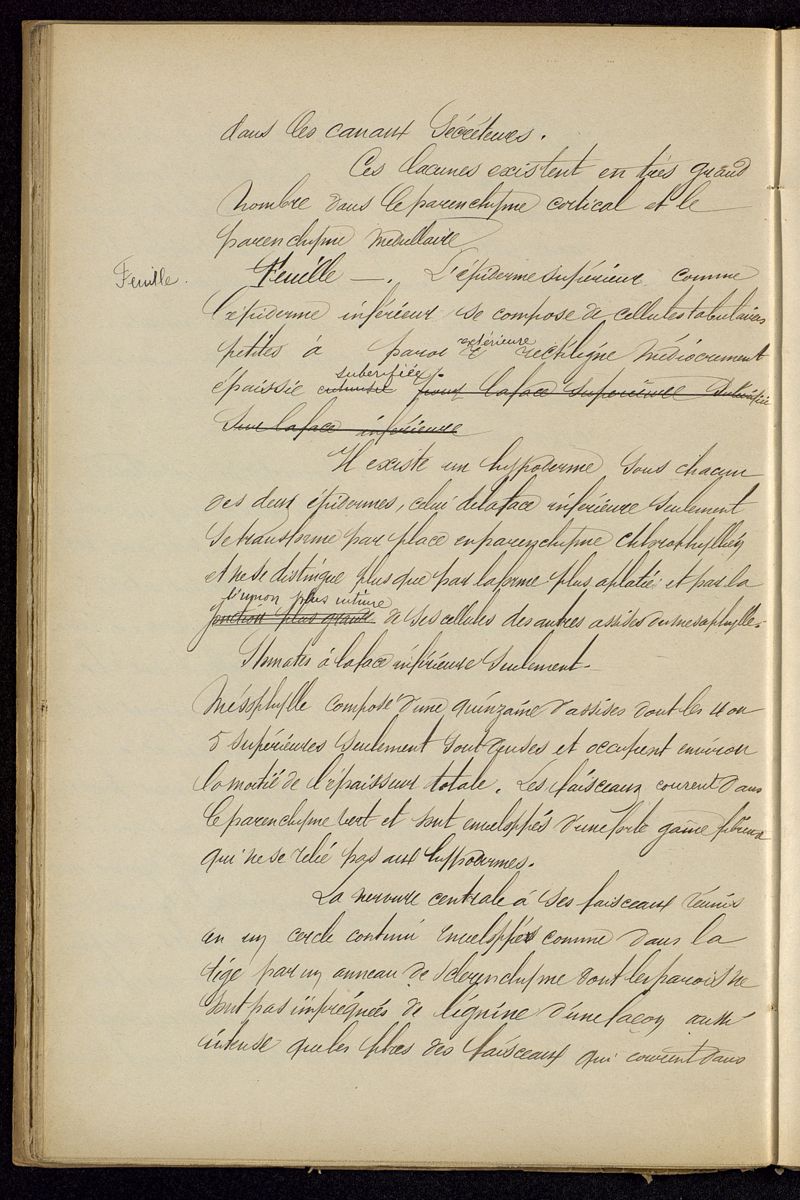 dans les canaux sécréteurs.
Ces lacunes existent en très grand
nombre dans le parenchyme cortical et le
parenchyme médullaire
Feuille.
Feuille —. L'épiderme supérieur comme
l'épiderme inférieur se compose de cellules tabulaires
petites à paroi extérieure rectiligne médiocrement
épaissie subérifiée pour la face supérieure
sur la face inférieure
Il existe un hypoderme sous chacun
des deux épidermes, celui de la face inférieure seulement
se transforme par place en parenchyme chlorophyllien
et ne se distingue plus que par la forme plus aplatie et par la
l'union plus intime
jonction plus grande de ses cellules des autres assises du mésophylle.
Stomates à la face inférieure seulement.
Mésophylle composé d'une quinzaine d'assises dont les 4 ou
5 supérieures seulement sont et occupent environ
la moitié de l'épaisseur totale. Les faisceaux courent dans
le parenchyme vert et sont enveloppés d'une forte gaine fibreuse
qui ne se relie pas aux hypodermes.
La nervure centrale à ses faisceaux réunis
en un cercle continu enveloppés comme dans la
tige par un anneau de sclerenchyme dont les parois ne
sont pas imprégnées de lignine d'une façon aussi
intense que les fibres des faisceaux qui courent dans